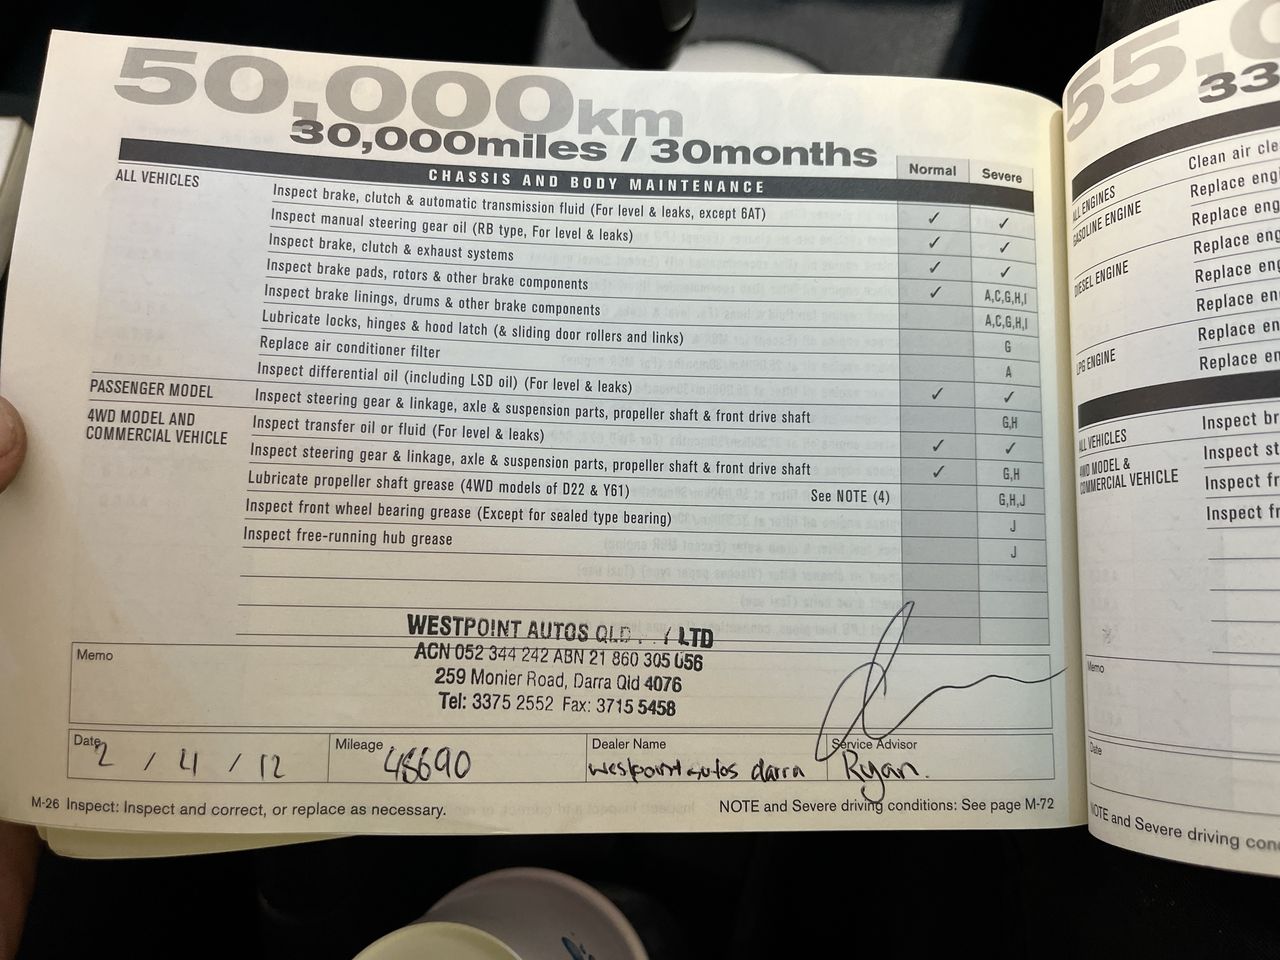 50,000km
30,000miles / 30months
CHASSIS AND BODY MAINTENANCE Normal Severe
ALL VEHICLES Inspect brake, clutch & automatic transmission fluid (For level & leaks, except 6AT) ✓ ✓
Inspect manual steering gear oil (RB type, For level & leaks) ✓ ✓
Inspect brake, clutch & exhaust systems ✓ ✓
Inspect brake pads, rotors & other brake components ✓ A,C,G,H,I
Inspect brake linings, drums & other brake components A,C,G,H,I
Lubricate locks, hinges & hood latch (& sliding door rollers and links) G
Replace air conditioner filter A
Inspect differential oil (including LSD oil) (For level & leaks) ✓ ✓
PASSENGER MODEL Inspect steering gear & linkage, axle & suspension parts, propeller shaft & front drive shaft G,H
4WD MODEL AND COMMERCIAL VEHICLE Inspect transfer oil or fluid (For level & leaks) ✓ ✓
Inspect steering gear & linkage, axle & suspension parts, propeller shaft & front drive shaft ✓ G,H
Lubricate propeller shaft grease (4WD models of D22 & Y61) See NOTE (4) G,H,J
Inspect front wheel bearing grease (Except for sealed type bearing) J
Inspect free-running hub grease J
WESTPOINT AUTOS QLD LTD
ACN 052 344 242 ABN 21 860 305 056
259 Monier Road, Darra Qld 4076
Tel: 3375 2552 Fax: 3715 5458
Memo
Date 2 / 4 / 12 Mileage 48690 Dealer Name westpoint autos darra Service Advisor Ryan.
M-26 Inspect: Inspect and correct, or replace as necessary. NOTE and Severe driving conditions: See page M-72
55,0
33
Clean air cle
ALL ENGINES Replace engi
GASOLINE ENGINE Replace eng
Replace eng
DIESEL ENGINE Replace eng
Replace eng
Replace eng
LPG ENGINE Replace eng
ALL VEHICLES Inspect br
4WD MODEL & COMMERCIAL VEHICLE Inspect st
Inspect fr
Inspect fr
Memo
Date
NOTE and Severe driving con